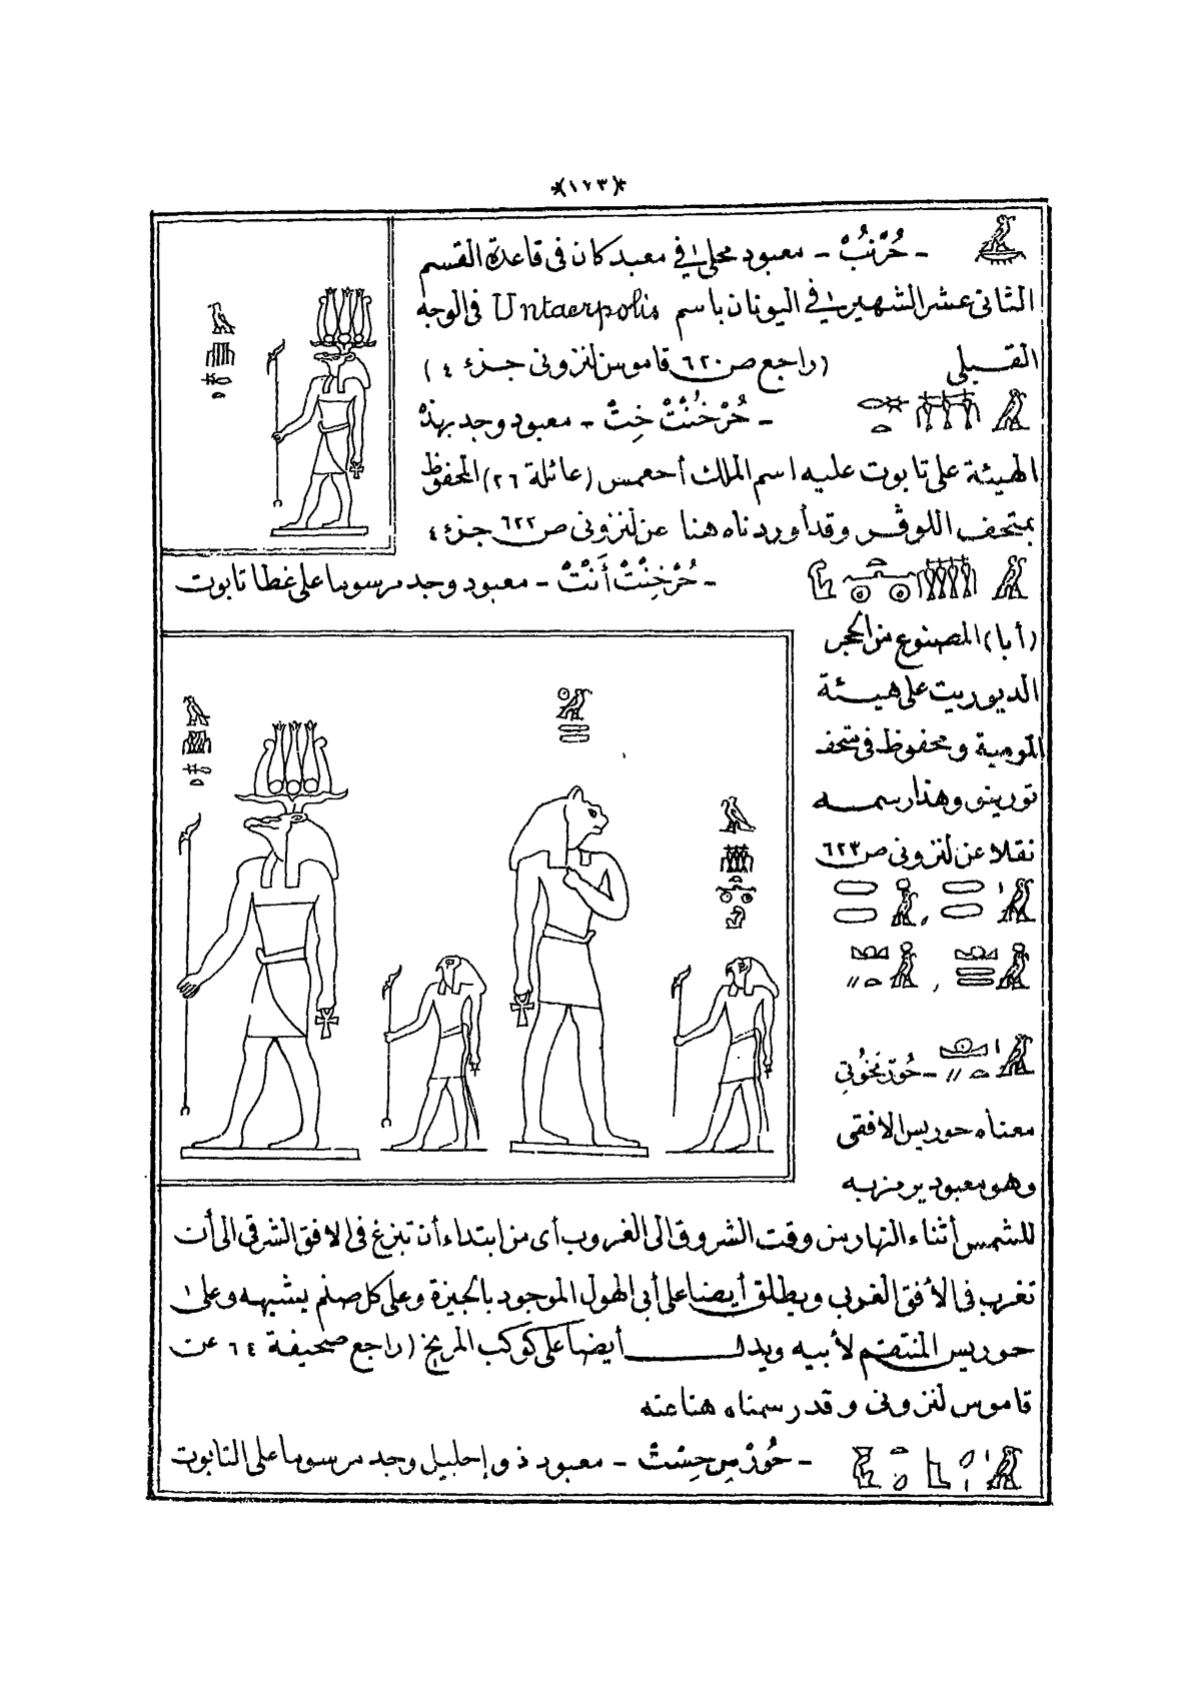 *(١٧٣)*
- حُرْنُبْ - معبود محلى فى معبد كان فى قاعدة القسم
الثانى عشر الشهير فى اليونان باسم Untaerpolis فى الوجه
القبلى (راجع ص ٦٢٠ قاموس لنزونى جزء ٤)
- حُرْخُنْتْ خِتْ - معبود وجد بهذه
الهيئة على تابوت عليه اسم الملك أحعمس (عائلة ٢٦) المحفوظ
بمتحف اللوڤر وقد أوردناه هنا عن لنزونى ص ٦٢٢ جزء ٤
- حُرْخِنْتْ أَنْتْ - معبود وجد مرسوما على غطا تابوت
(أبا) المصنوع من الحجر
الديوريت على هيئة
المومية ومحفوظ فى متحف
تورينو وهذا رسمه
نقلا عن لنزونى ص ٦٢٣
- حُورْمَخُوتِى
معناه حوريس الافقى
وهو معبود يرمز به
للشمس أثناء النهار من وقت الشروق الى الغروب أى من ابتداء أن تبزغ فى الافق الشرقى الى أن
تغرب فى الأفق الغربى ويطلق أيضا على أبى الهول الموجود بالجيزة وعلى كل صنم يشبهه وعلى
حوريس المنتقم لأبيه ويدل أيضا على كوكب المريخ (راجع صحيفة ٦٤ عن
قاموس لنزونى وقد رسمناه هنا عنه
- حُورْمِسْ حِسْتْ - معبود ذو إحليل وجد مرسوما على التابوت